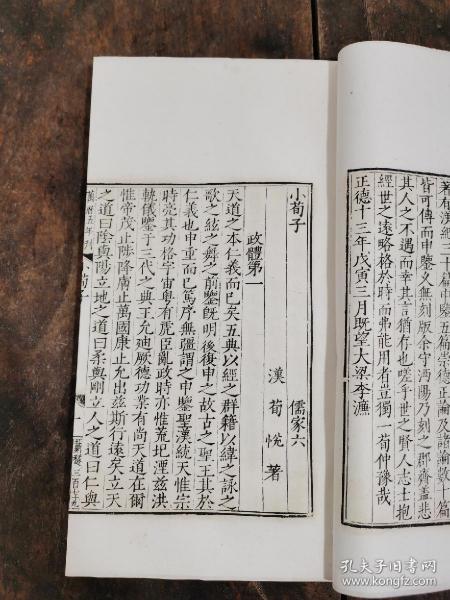 著有漢紀三十篇申鑒五篇崇德正論及諸論數十篇
皆可傳而申鑒又無刻版余守沔陽乃刻之郡齋盖悲
其人之不遇而幸其言猶存也嗟乎世之賢人志士抱
經世之遠略格於時而弗能用者豈獨一荀仲豫哉
正德十三年戊寅三月既望大梁李濂
小荀子 儒家六
漢荀悅著
政體第一
天道之本仁義而已矣五典以經之群籍以緯之詠之
歌之絃之舞之前鑒既明後復申之故古之聖王其於
仁義也申重而已篤序無彊謂之申鑒聖漢統天惟宗
時亮其功格宇宙粵有虎臣亂政時亦惟荒圯湮茲洪
軌儀鑒于三代之典王允迪厥德功業有尚天道在爾
惟帝茂止陟降膚止萬國康止允出茲斯行遠矣立天
之道曰陰與陽立地之道曰柔與剛立人之道曰仁與
萬曆五年刊 小荀子 一
孔夫子旧书网
www.kongfz.com